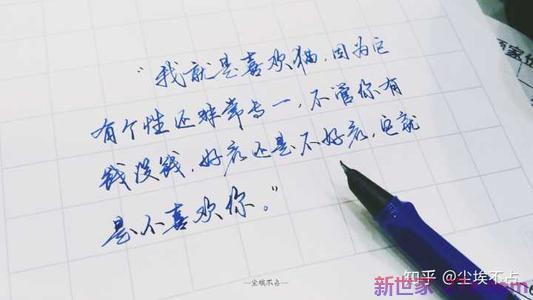 “我就是喜欢猫,因为它
有个性还非常专一,不管你有
钱没钱,好看还是不好看,它就
是不喜欢你。”
—尘埃不占—
知乎 @尘埃不占
新世家